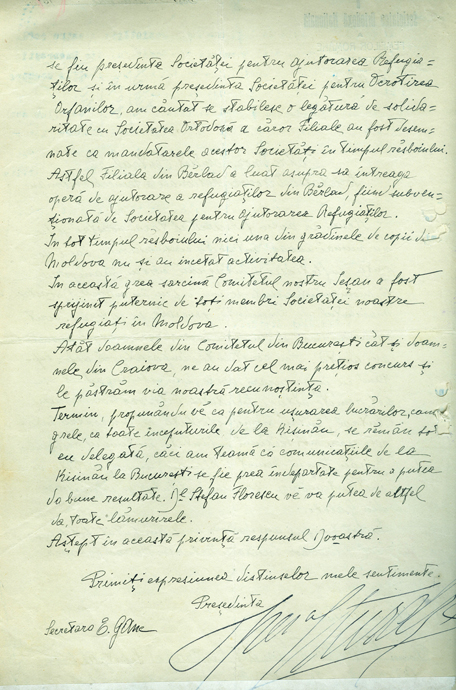 să fiu președinta Societăței pentru ajutorarea Refugia=
ților și în urmă președinta Societăței pentru Ocrotirea
Orfanilor, am căutat să stabilesc o legătura de solida=
ritate cu Societatea Ortodoxă a căror Filiale au fost desem=
nate ca mandatarele acestor Societăți în timpul răsboiului.
Astfel Filiala din Bârlad a luat asupra sa întreaga
operă de ajutorare a refugiaților din Bârlad, fiind subven=
ționată de Societatea pentru Ajutorarea Refugiaților.
În tot timpul răsboiului nici una din grădinele de copii din
Moldova nu și au încetat activitatea.
În această grea sarcină Comitetul nostru Ieșan a fost
sprijinit puternic de toți membri Societăței noastre
refugiați în Moldova.
Atât doamnele din Comitetul din București cât și doam=
nele din Craiova, ne au dat cel mai prețios concurs și
le păstrăm via noastră recunoștință.
Termin, propunându vă ca pentru ușurarea lucrărilor, cam
grele, ca toate începuturile de la Kișinău, să rămân tot
eu delegată, căci am teamă că comunicațiile de la
Kișinău la București să fie prea îndepărtate pentru a putea
da bune rezultate. Dl Ștefan Florescu vă va putea de altfel
da, toate lămuririle.
Aștept în această privință respunsul Dvoastră.
Primiți espresiunea distinselor mele sentimente.
Președinta
Secretara E. Gane